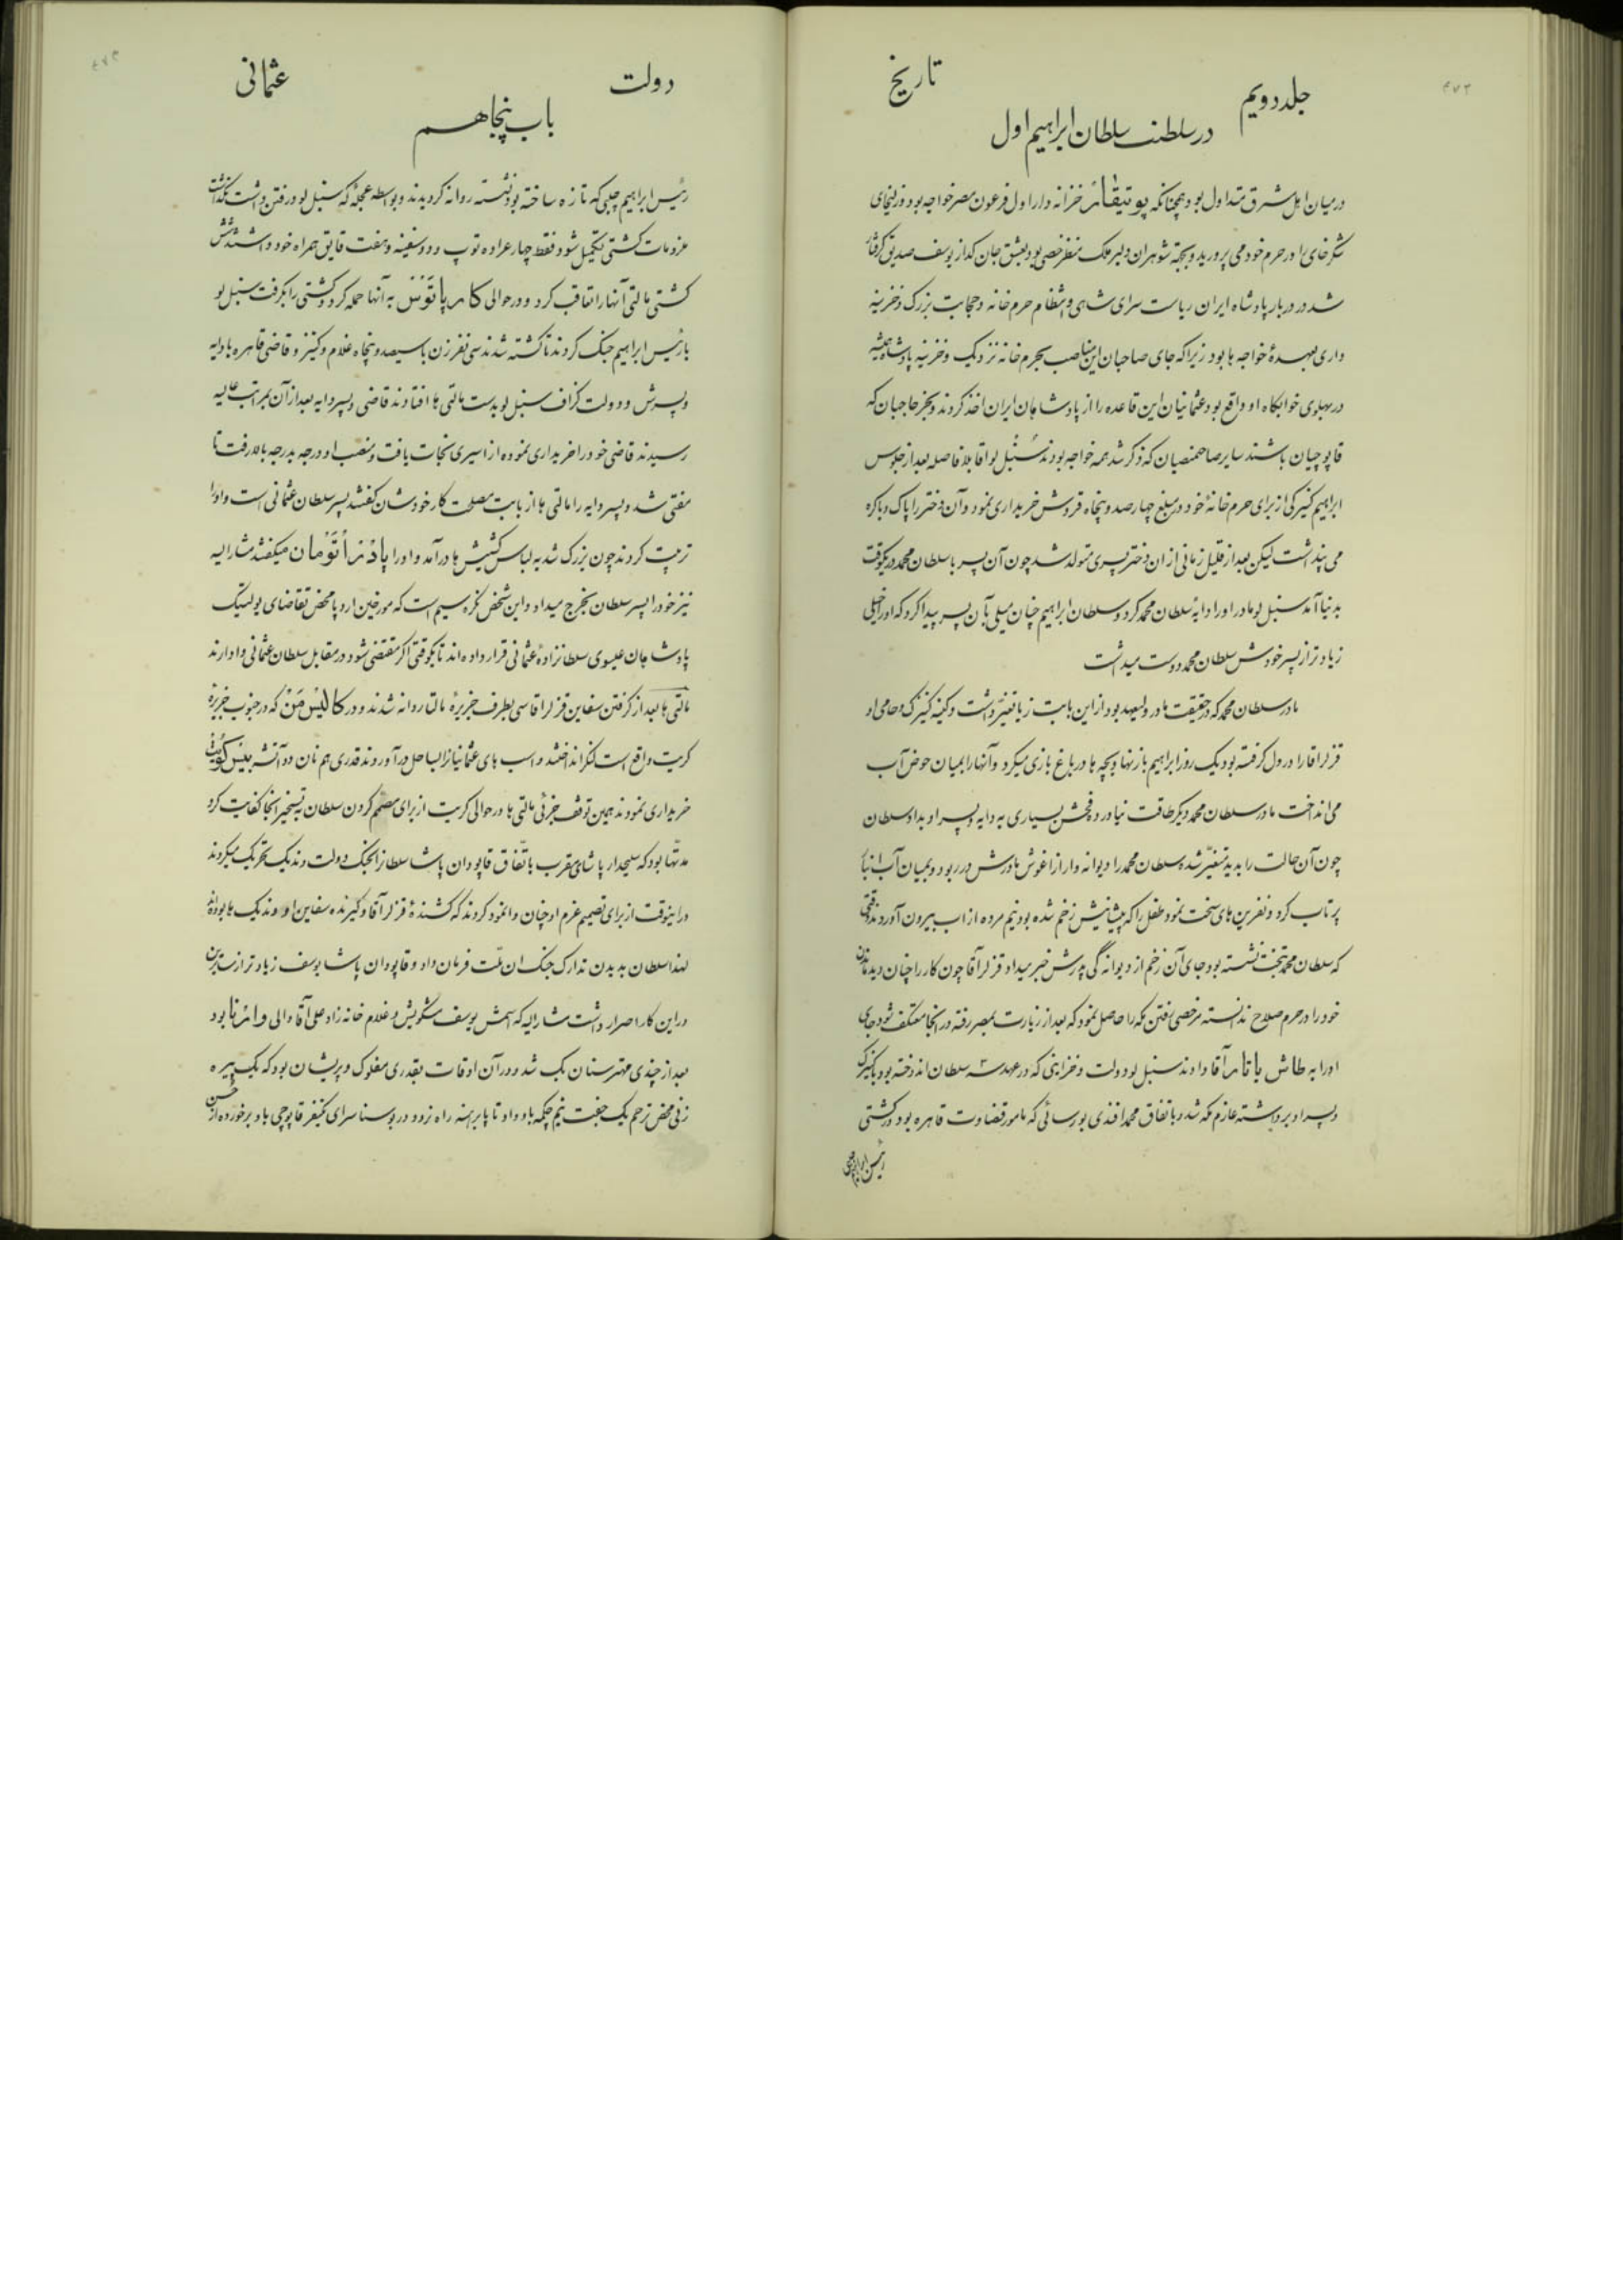 ۴۷۲
تاریخ
جلد دویم
در سلطنت سلطان ابراهیم اول
در میان اهل مشرق متداول بود همچنانکه پوتیفار خزانه دار اول فرعون مصر خواجه بود و زلیخای
شکر خای را در حرم خود می پرورید و بجهة شوهران دلبر ملک منظر خصی بود بعشق جان کداز یوسف صدیق کرفتار
شد در دربار پادشاه ایران ریاست سرای شاهی و انتظام حرم خانه و حجابت بزرک و خزینه
داری بعهدهٔ خواجه ها بود زیرا که جای صاحبان این مناصب بحرم خانه نزدیک و خزینه پادشاه همیشه
در پهلوی خوابکاه او واقع بود عثمانیان این قاعده را از پادشاهان ایران اخذ کردند و بجز حاجبان که
قاپوچیان باشند سایر صاحبمنصبان که ذکر شد همه خواجه بودند سُنْبُل لو اقا بلا فاصله بعد از جلوس
ابراهیم کنیزکی از برای حرم خانهٔ خود در مبلغ چهار صد و پنجاه قروش خریداری نمود و آن دختر را پاک و باکره
می پنداشت لیکن بعد از قلیل زمانی از ان دختر پسری متولد شد چون آن پسر با سلطان محمد در یکوقت
بدنیا آمد سنبل لو مادر او را دایهٔ سلطان محمد کرد و سلطان ابراهیم چنان میلی بآن پسر پیدا کرد که او را خیلی
زیادتر از پسر خودش سلطان محمد دوست میداشت
مادر سلطان محمد که در حقیقت مادر ولیعهد بود از این بابت زیاد تغیّر داشت و کینه کنیزک و حامی او
قزلر اقا را در دل کرفته بود یک روز ابراهیم با زنها و بچه ها در باغ بازی میکرد و آنها را بمیان حوض آب
می انداخت مادر سلطان محمد دیکر طاقت نیاورده فحش بسیاری به دایه و پسر او بداد سلطان
چون آن حالت را بدید متغیّر شده سلطان محمد را دیوانه وار از اغوش مادرش در ربود و بمیان آب انبار
پرتاب کرد و نفرین های سخت نمود طفل را که پیشانیش زخم شده بود نیم مرده از اب بیرون آوردند وقتی
که سلطان محمد بتخت نشسته بود جای آن زخم از دیوانه کی پدرش خبر میداد قزلر آقا چون کار را چنان دید ماندن
خود را در حرم صلاح ندانسته مرخصی رفتن مکه را حاصل نمود که بعد از زیارت بمصر رفته در انجا معتکف شود جای
او را به طاش یاتار آقا دادند سنبل لو دولت و خزاینی که در عهد سه سلطان اندوخته بود با کنیزک
و پسر او برداشته عازم مکه شد و باتفاق محمد افندی بورسائی که مامور قضاوت قاهره بود در کشتی
رئیس ابراهیم چلبی
۴۷۳
دولت
عثمانی
باب پنجاهم
رئیس ابراهیم چلبی که تازه ساخته بود نشسته روانه کردیدند و بواسطه عجلهٔ که سنبل لو در رفتن داشت نکذاشت
ملزومات کشتی تکمیل شود فقط چهار عراده توپ و دو سفینه و هفت قایق همراه خود داشتند شش
کشتی مالتی آنها را تعاقب کرد و در حوالی کارپاتوس به آنها حمله کرد و کشتی را بکرفت سنبل لو
با رئیس ابراهیم جنک کردند تا کشته شدند سی نفر زن با سیصد و پنجاه غلام و کنیز و قاضی قاهره با دایه
و پسرش و دولت کزاف سنبل لو بدست مالتی ها افتادند قاضی و پسر دایه بعد از آن بمراتب عالیه
رسیدند قاضی خود را خریداری نموده از اسیری نجات یافت و منصب او درجه بدرجه بالا رفت تا
مفتی شد و پسر دایه را مالتی ها از بابت مصلحت کار خودشان کفتند پسر سلطان عثمانی است و او را
تربیت کردند چون بزرک شد به لباس کشیش ها درآمد و او را پادْرِ اُتومان میکفتند مشارالیه
نیز خود را پسر سلطان بخرج میداد و این شخص نکره سیم است که مورخین اروپا محض تقاضای پولتیک
پادشاهان عیسوی سلطانزادهٔ عثمانی قرار داده اند تا یکوقتی اکر مقتضی شود در مقابل سلطان عثمانی وادارند
مالتی ها بعد از کرفتن سفاین قزلر اقاسی بطرف جزیرهٔ مالتا روانه شدند و در کالیس من که در جنوب جزیره
کریت واقع است لنکر انداختند و اسب های عثمانیانرا بساحل درآوردند و قدری هم نان دو آتشه
خریداری نمودند همین توقف جزئی مالتی ها در حوالی کریت از برای مصمم کردن سلطان به تسخیر انجا کفایت کرد
مدّتها بود که سلیحدار پاشای مقرب باتّفاق قاپودان پاشا سلطانرا بجنک دولت وندیک تحریک میکردند
در اینوقت از برای تصمیم عزم او چنان وانمود کردند که کشندهٔ قزلر آقا و کیرنده سفاین او وندیک ها بوده اند
لهذا سلطان بدیدن تدارک جنک ان ملّت فرمان داد و قاپودان پاشا یوسف زیادتر از سایرین
در این کار اصرار داشت مشارالیه که اسمش یوسف شکوبش و غلام خانه زاد علی آقا والی وادنا بود
بعد از چندی مهتر سنان بک شد و در آن اوقات بقدری مفلوک و پریشان بود که یک پیره
زنی محض ترحم یک جفت نیم چکمه باو داد تا پا برهنه راه نرود در بوسنا سرای یکنفر قاپوچی باو برخورده از